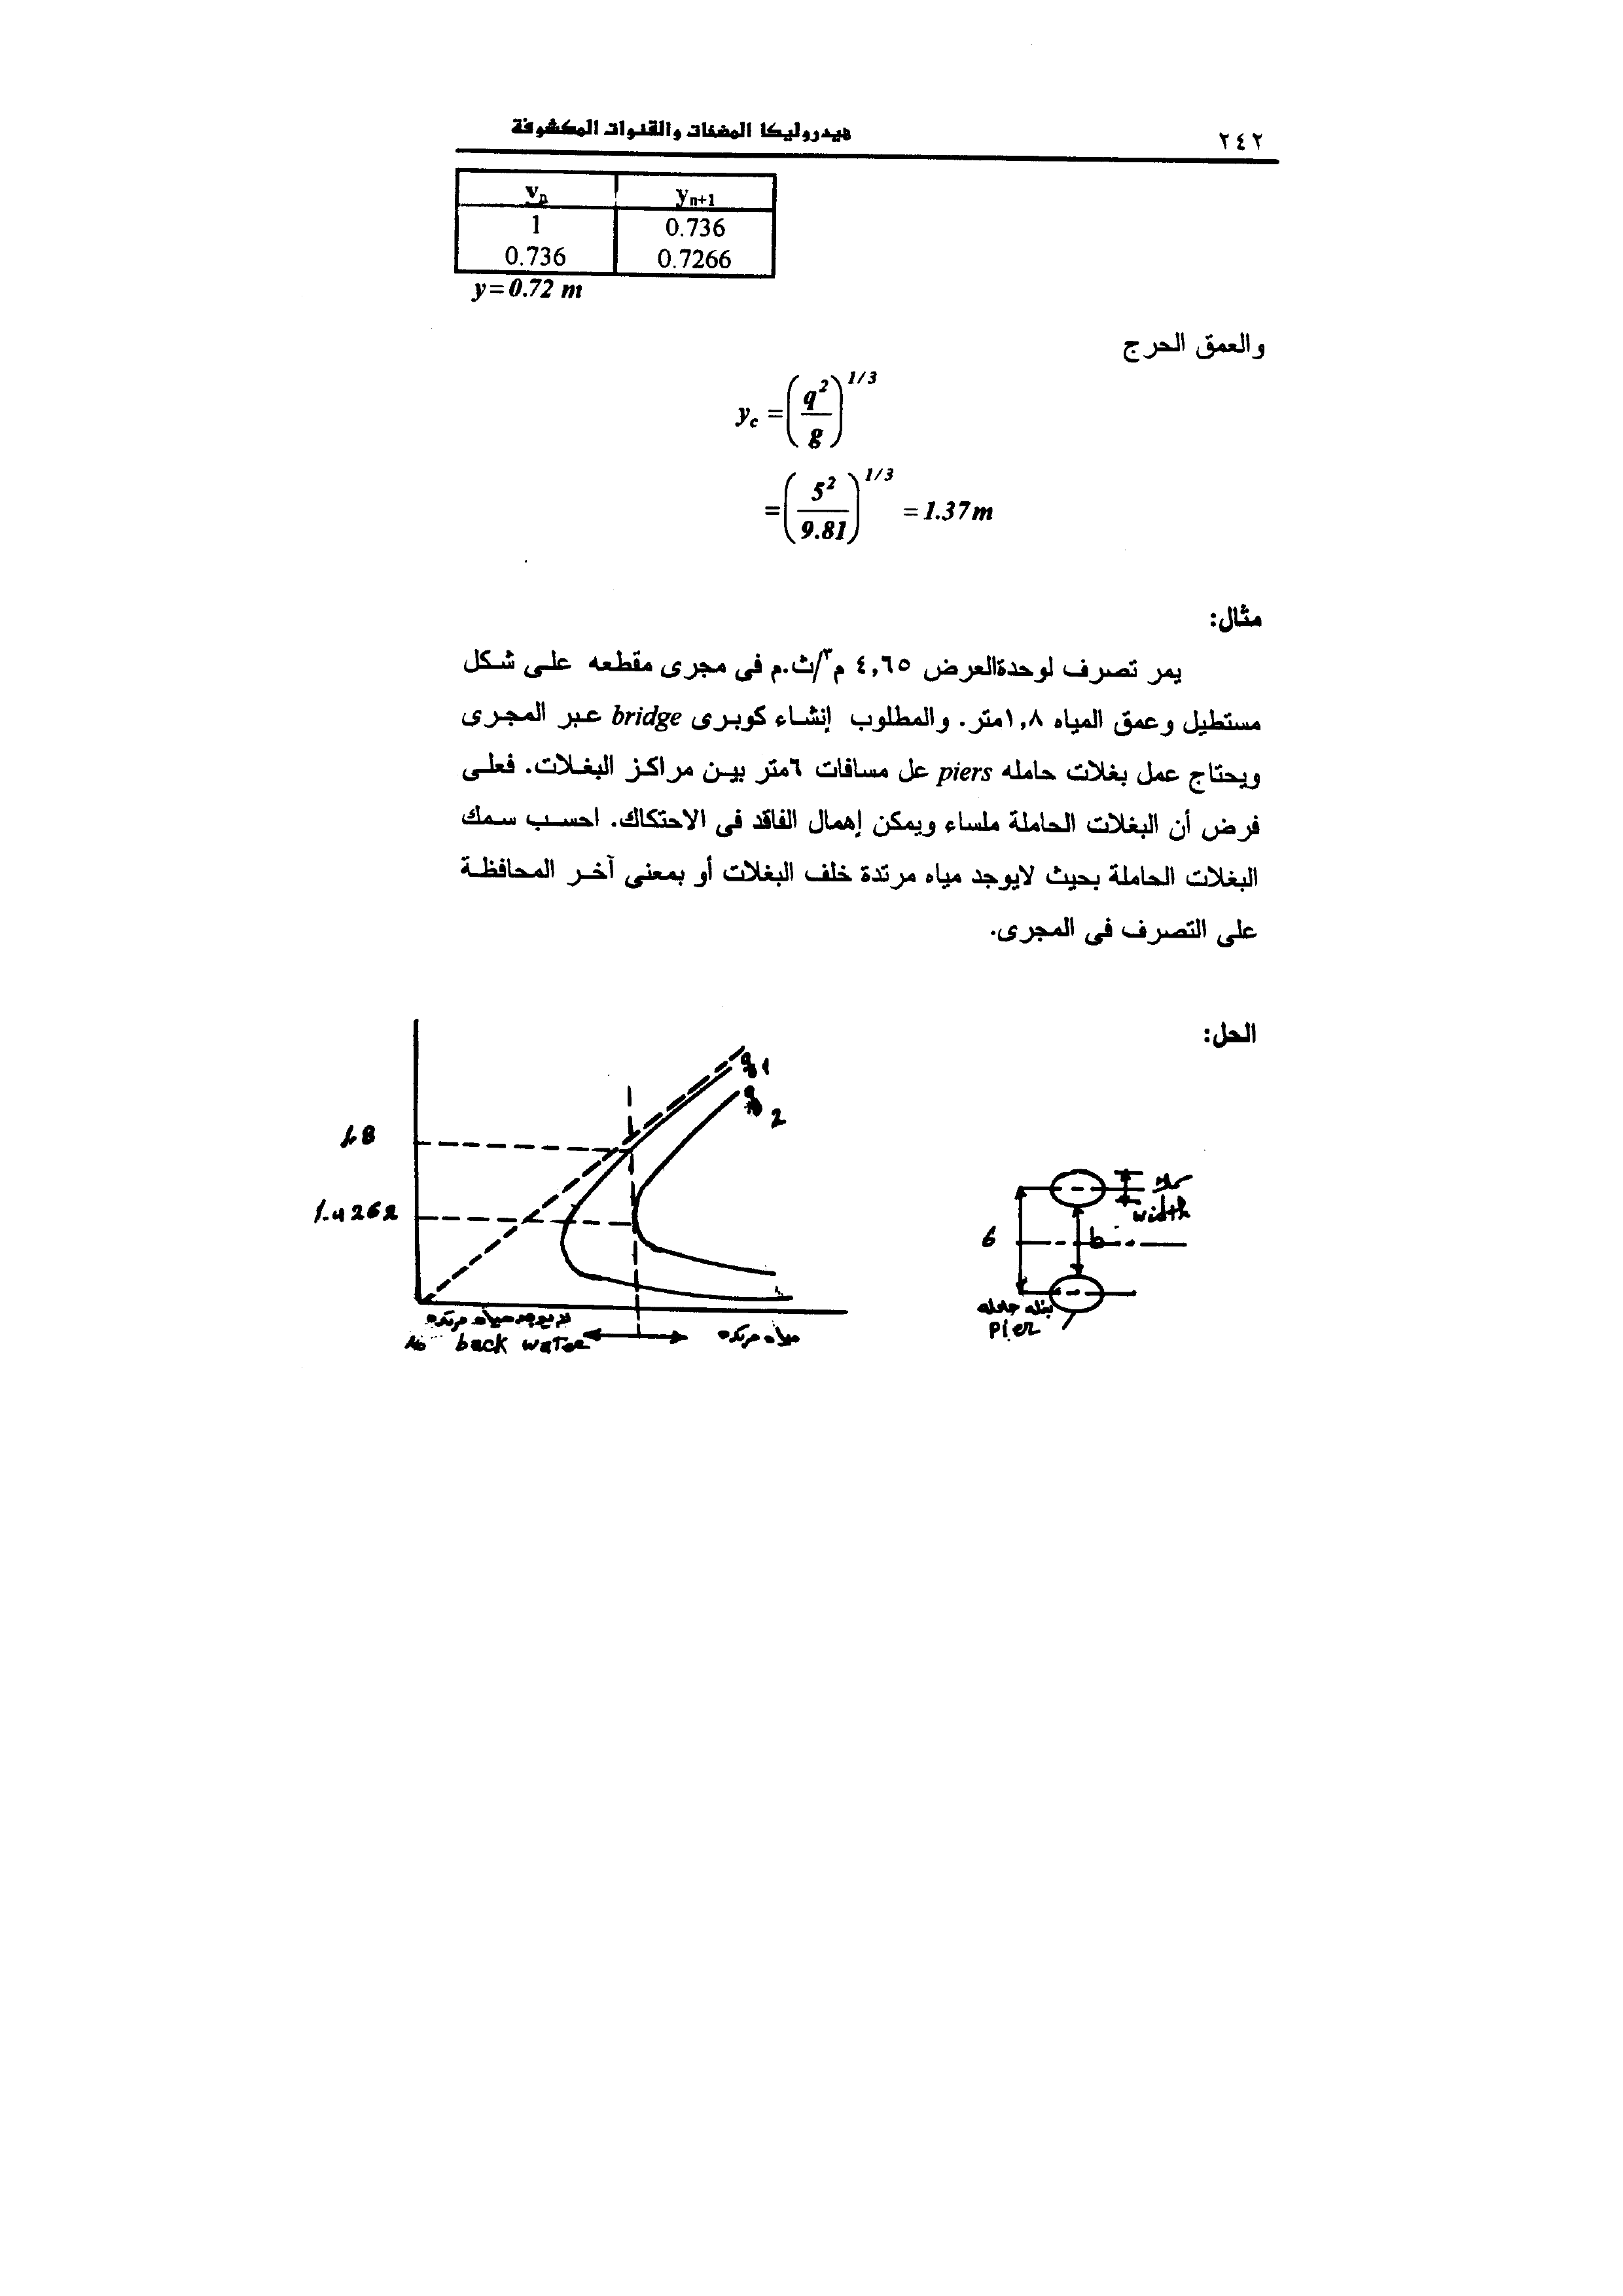 ٢٤٢ هيدروليكا المضخات والقنوات المكشوفة
vn yn+1
1 0.736
0.736 0.7266
y=0.72 m
والعمق الحرج
yc = (q²/g)^1/3
= (5²/9.81)^1/3 = 1.37m
مثال:
يمر تصرف لوحدةالعرض ٤,٦٥ م٣/ث.م فى مجرى مقطعه على شكل
مستطيل وعمق المياه ١,٨متر. والمطلوب إنشاء كوبرى bridge عبر المجرى
ويحتاج عمل بغلات حامله piers عل مسافات ٦متر بين مراكز البغلات. فعلى
فرض أن البغلات الحاملة ملساء ويمكن إهمال الفاقد فى الاحتكاك. احسب سمك
البغلات الحاملة بحيث لايوجد مياه مرتدة خلف البغلات أو بمعنى آخر المحافظة
على التصرف فى المجرى.
الحل:
q1
q2
1.8
1.4262
لا يوجد مياه مرتده
No back water
مياه مرتده
width
6
b
بغله حامله
Pier